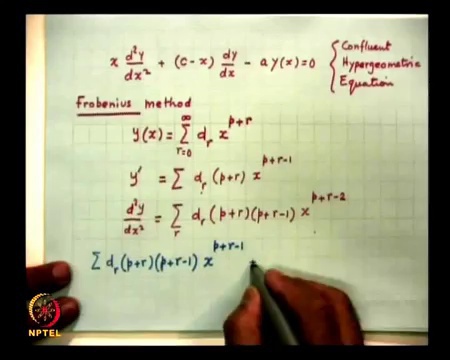 x d²y/dx² + (c-x) dy/dx - a y(x) = 0 { Confluent Hypergeometric Equation
Frobenius method
y(x) = ∑_{r=0}^{∞} d_r x^{p+r}
y' = ∑ d_r (p+r) x^{p+r-1}
d²y/dx² = ∑_r d_r (p+r)(p+r-1) x^{p+r-2}
∑ d_r (p+r)(p+r-1) x^{p+r-1}
NPTEL